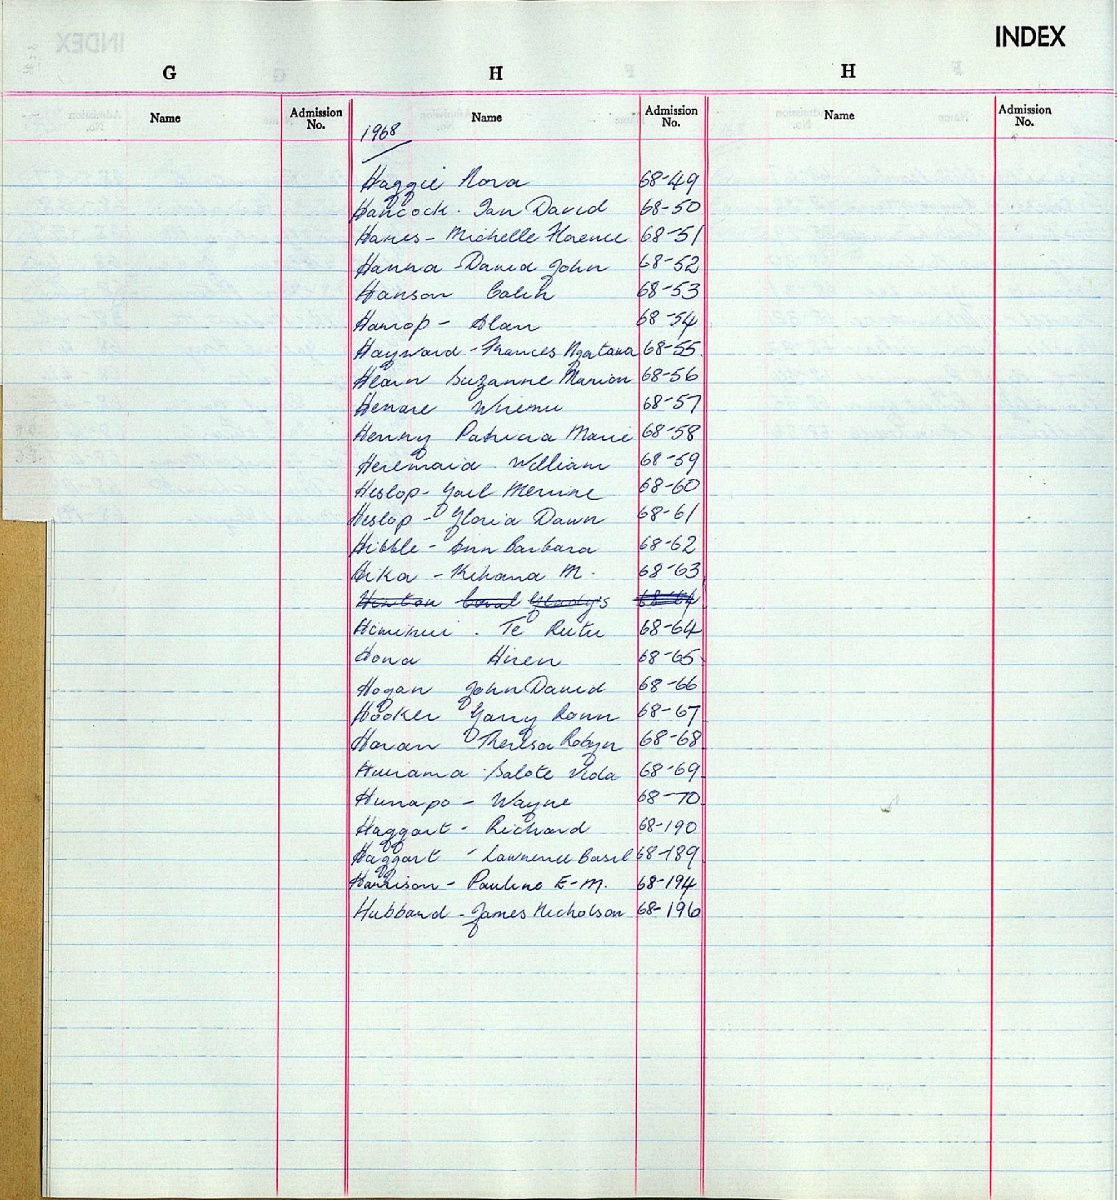 INDEX
G H H
Name Admission No. Name Admission No. Name Admission No.
1968
Haggie Nora 68-49
Hancock. Ian David 68-50
Hanes - Michelle Florence 68-51
Hanna - David John 68-52
Hanson Colin 68-53
Harrop - Alan 68-54
Hayward - Frances Ngatawa 68-55
Hearn Suzanne Marion 68-56
Henare Wiremu 68-57
Henry Patricia Marie 68-58
Heremaia. William 68-59
Heslop - Gail Merine 68-60
Heslop - Gloria Dawn 68-61
Hibble - Ann Barbara 68-62
Hika - Kihana M. 68-63
Hinton Coral Gladys 68-64
Himinui. Te Rutu 68-64
Hona Hiren 68-65
Hogan John David 68-66
Hooker Garry Ronn 68-67
Horan Theresa Robyn 68-68
Huirama Salote Vida 68-69
Hunapo - Wayne 68-70
Haggart - Richard 68-190
Haggart - Lawrence Basil 68-189
Harrison - Pauline E-M. 68-194
Hubbard - James Nicholson 68-196